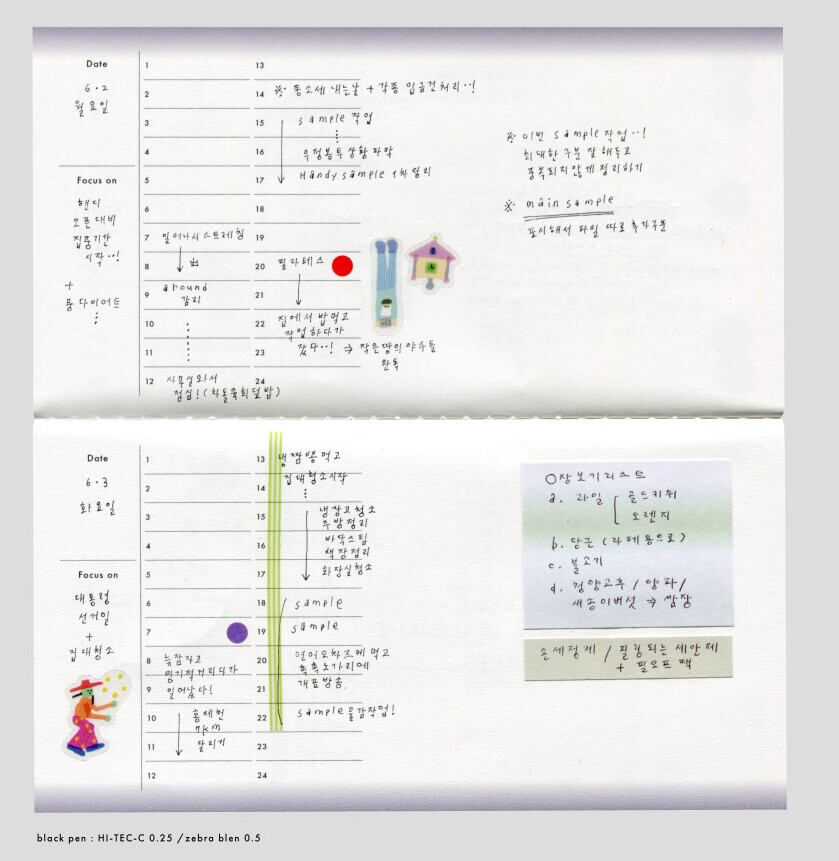 Date
6·2
월요일
Focus on
핸디
오픈대비
집중기간
시작··!
+
몸 다이어트
1
2
3
4
5
6
7 일어나서 스트레칭
8 出
9 around
감리
10
11
12 사무실와서
점심! (차돌육회덮밥)
13
14 ※ 종소세 내는날 + 각종 입금건처리··!
15 sample 작업
16 우정봉투상황파악
17 Handy sample 1차정리
18
19
20 필라테스
21
22 집에서 밥먹고
작업하다가
23 잤다··! → 작은땅의야수들
완독
24
※ 이번 sample 작업··!
최대한 구분 잘 해두고
중복되지않게 정리하기
※ main sample
표시해서 파일 따로 추가구분
Date
6·3
화요일
Focus on
대통령
선거일
+
집대청소
1
2
3
4
5
6
7
8 늦잠자고
밍기적거리다가
9 일어났다!
10 홍제천
7km
11 달리기
12
13 냉짬뽕먹고
14 집대청소시작
15 냉장고청소
주방정리
16 바닥스팀
책장정리
17 화장실청소
18 sample
19 sample
20 연어오차즈케 먹고
촉촉노가리에
21 개표방송.
22 sample 물감작업!
23
24
○장보기리스트
a. 과일 골드키위
오렌지
b. 당근 (라페용으로)
c. 불고기
d. 청양고추 / 양파 /
새송이버섯 → 쌈장
손세정제 / 필링되는 세안제
+ 필오프 팩
black pen : HI-TEC-C 0.25 / zebra blen 0.5